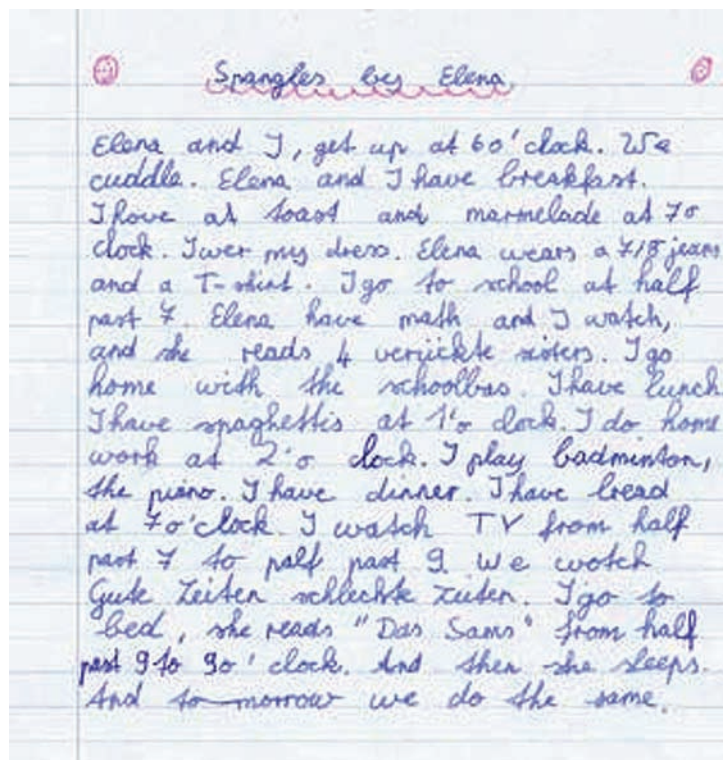 Spangles by Elena
Elena and I, get up at 6o'clock. We
cuddle. Elena and I have breakfast.
I have at toast and marmelade at 7o
clock. I wer my dress. Elena wears a 7/8 jeans
and a T-shirt. I go to school at half
past 7. Elena have math and I watch,
and she reads 4 verrückte sisters. I go
home with the schoolbus. I have lunch
I have spaghettis at 1'o clock. I do home
work at 2'o clock. I play badminton,
the piano. I have dinner. I have bread
at 7o'clock. I watch TV from half
past 7 to palf past 9. We wotch
Gute Zeiten schlechte Zeiten. I go to
bed, she reads "Das Sams" from half
past 9 to 9o'clock. And then she sleeps.
And to-morrow we do the same.